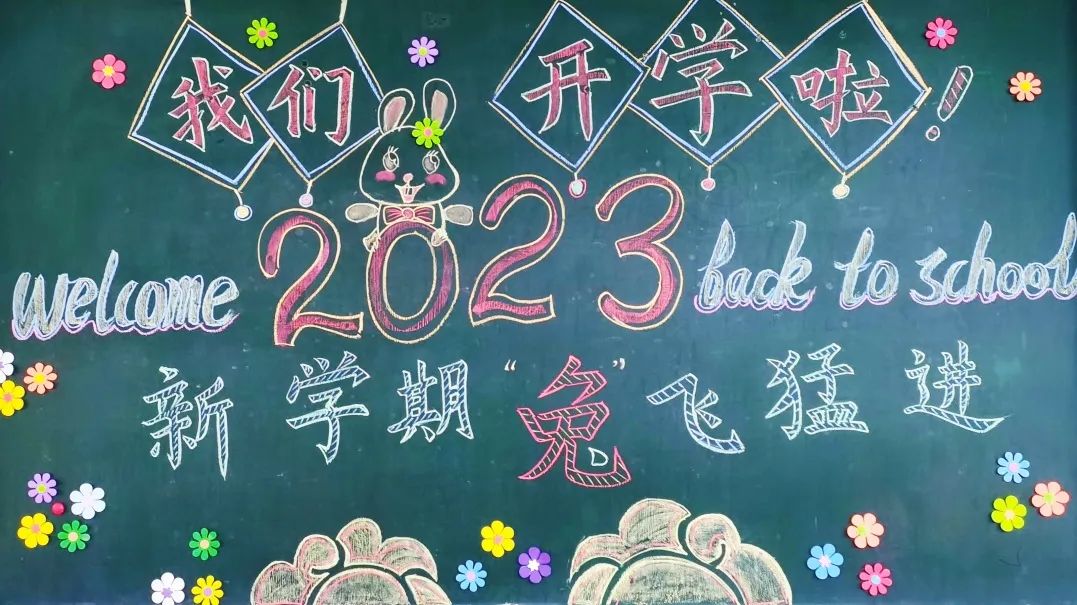 我们开学啦！
welcome 2023 back to school
新学期“兔”飞猛进